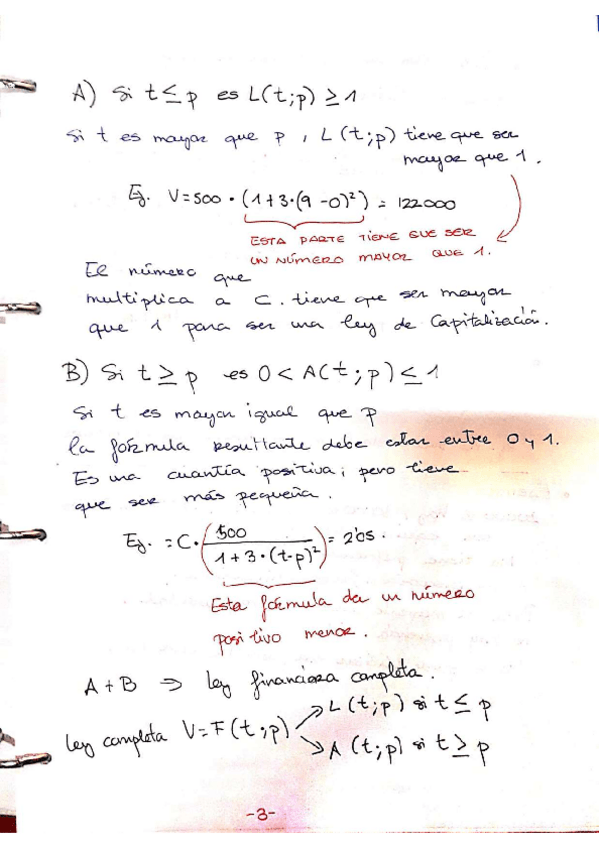 A) Si t ≤ p es L(t;p) ≥ 1
Si t es mayor que p , L (t;p) tiene que ser
mayor que 1.
Ej. V=500 · (1+3·(9-0)²) = 122000
ESTA PARTE TIENE QUE SER
UN NÚMERO MAYOR QUE 1.
El número que
multiplica a C. tiene que ser mayor
que 1 para ser una ley de Capitalización.
B) Si t ≥ p es 0 < A(t;p) ≤ 1
Si t es mayor igual que p
la fórmula resultante debe estar entre 0 y 1.
Es una cuantía positiva, pero tiene
que ser más pequeña.
Ej. = C· (500 / 1+3·(t-p)²) = 2'05.
Esta fórmula da un número
positivo menor.
A + B ⇒ ley financiera completa.
L (t;p) si t ≤ p
ley completa V=F(t;p)
A (t;p) si t ≥ p
-3-